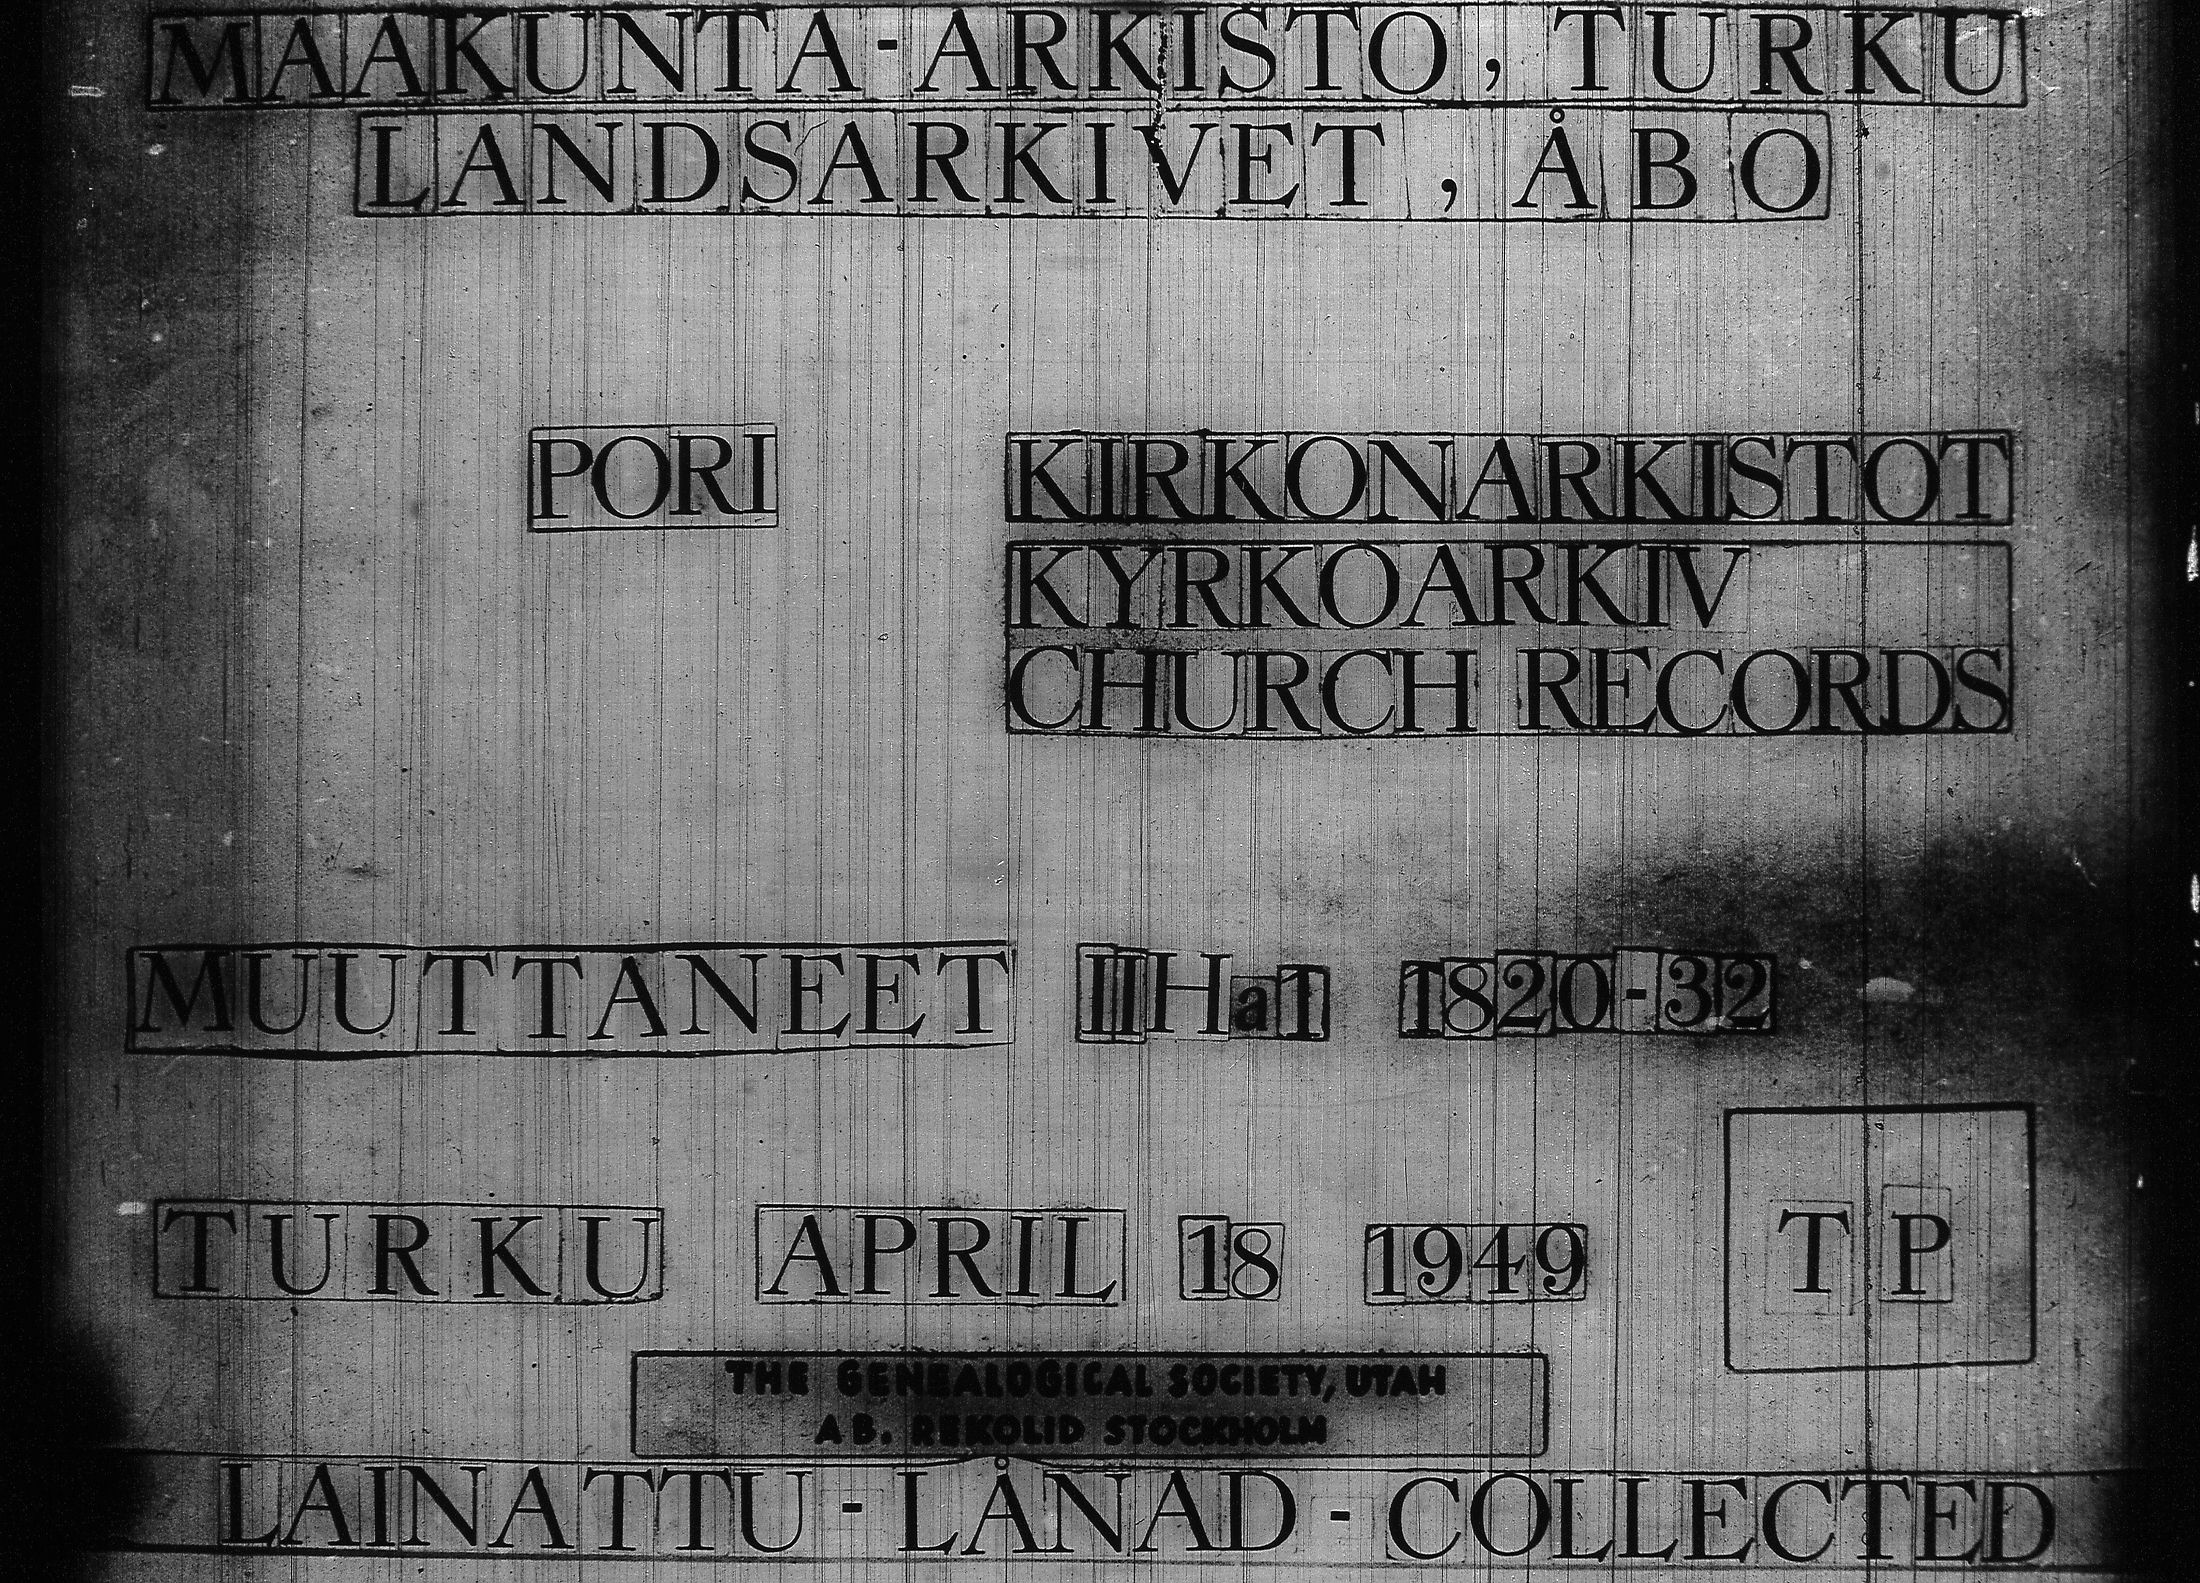 MAAKUNTA-ARKISTO, TURKU
LANDSARKIVET, ÅBO
PORI KIRKONARKISTOT
KYRKOARKIV
CHURCH RECORDS
MUUTTANEET IIHa1 1820-32
TURKU APRIL 18 1949 TP
THE GENEALOGICAL SOCIETY, UTAH
AB. REKOLID STOCKHOLM
LAINATTU - LÅNAD - COLLECTED